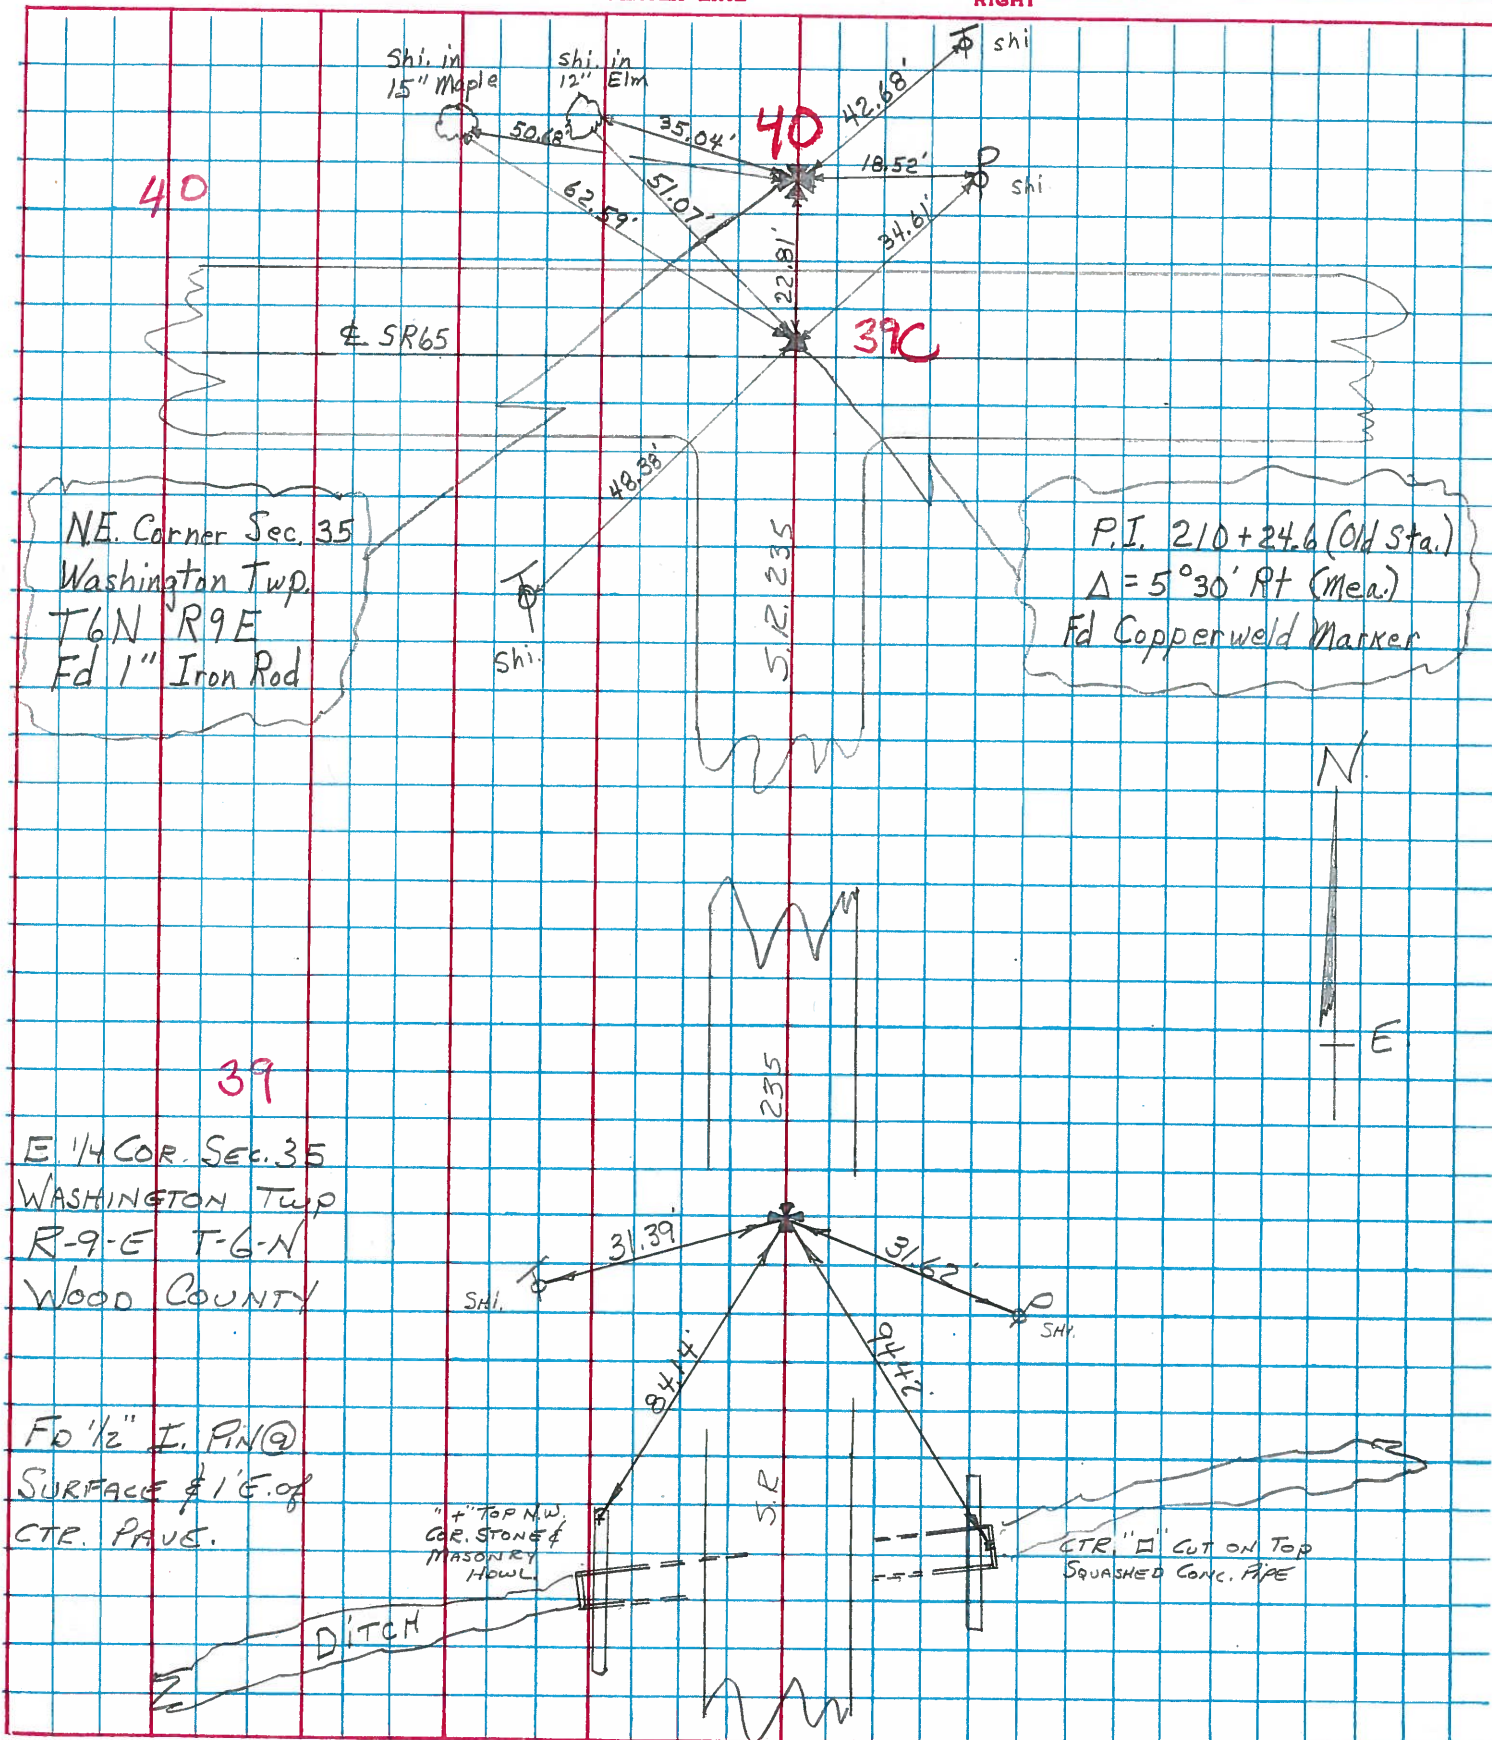 RIGHT
shi
Shi. in
15" Maple
shi. in
12" Elm
42.68'
40
50.68'
35.04'
18.52'
shi
40
62.59'
51.07'
34.61'
22.81'
℄ SR65
39C
48.38'
Shi.
S.R. 235
N.E. Corner Sec. 35
Washington Twp.
T6N R9E
Fd 1" Iron Rod
P.I. 210+24.6 (Old Sta.)
Δ = 5°30' Rt (Mea.)
Fd Copperweld Marker
N
E
39
235
E. 1/4 COR. SEC. 35
WASHINGTON TWP
R-9-E T-6-N
WOOD COUNTY
31.39'
31.62'
SHI.
SHI.
84.14'
94.42'
FD 1/2" I. PIN @
SURFACE & 1' E. of
CTR. PAVE.
S.R
"+" TOP N.W.
COR. STONE &
MASONRY
HDWL.
CTR. "□" CUT ON TOP
SQUASHED CONC. PIPE
DITCH